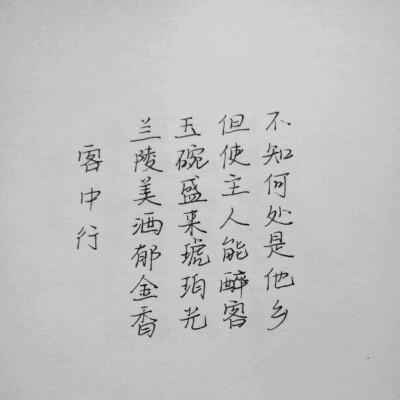 客中行
兰陵美酒郁金香
玉碗盛来琥珀光
但使主人能醉客
不知何处是他乡